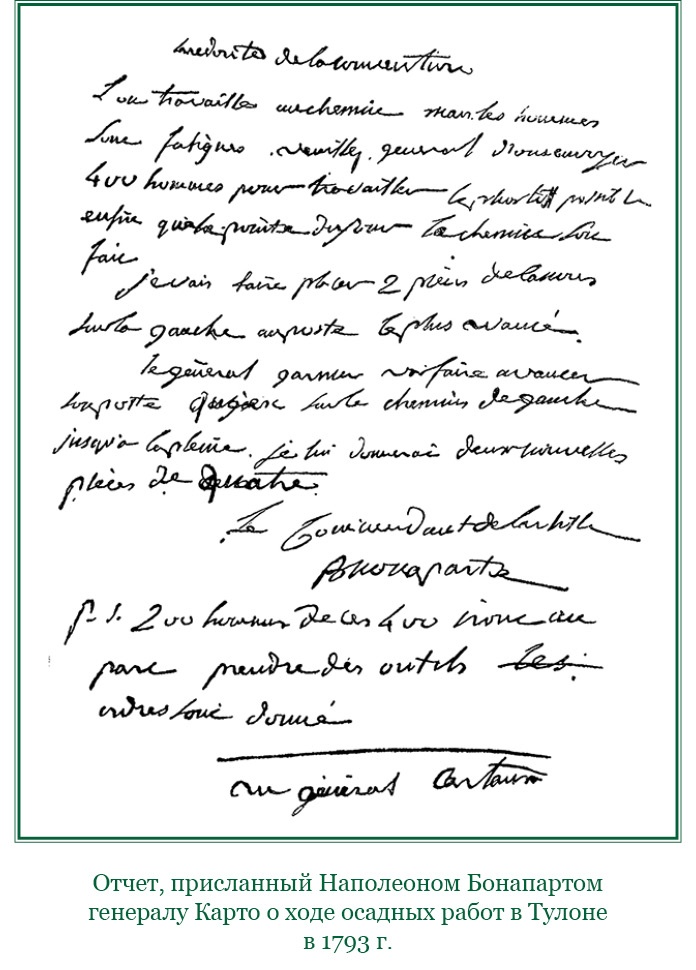 de la convention
L on travaille au chemin mais les hommes
sont fatigues . veuillez general nous envoyer
400 hommes pour travailler
enfin qu a la pointe du jour le chemin soit
fait
je vais faire placer 2 pieces
sur la gauche au poste le plus avancé.
le général va faire avancer
sur le chemin de gauche
jusqu a la pleine . je lui donnerai deux nouvelles
pièces de quatre.
Le Commendant de l
Buonaparte
p. s. 200 hommes de ces 400 iront au
parc prendre des outils les.
ordres sont donné
au général Cartaux
Отчет, присланный Наполеоном Бонапартом
генералу Карто о ходе осадных работ в Тулоне
в 1793 г.